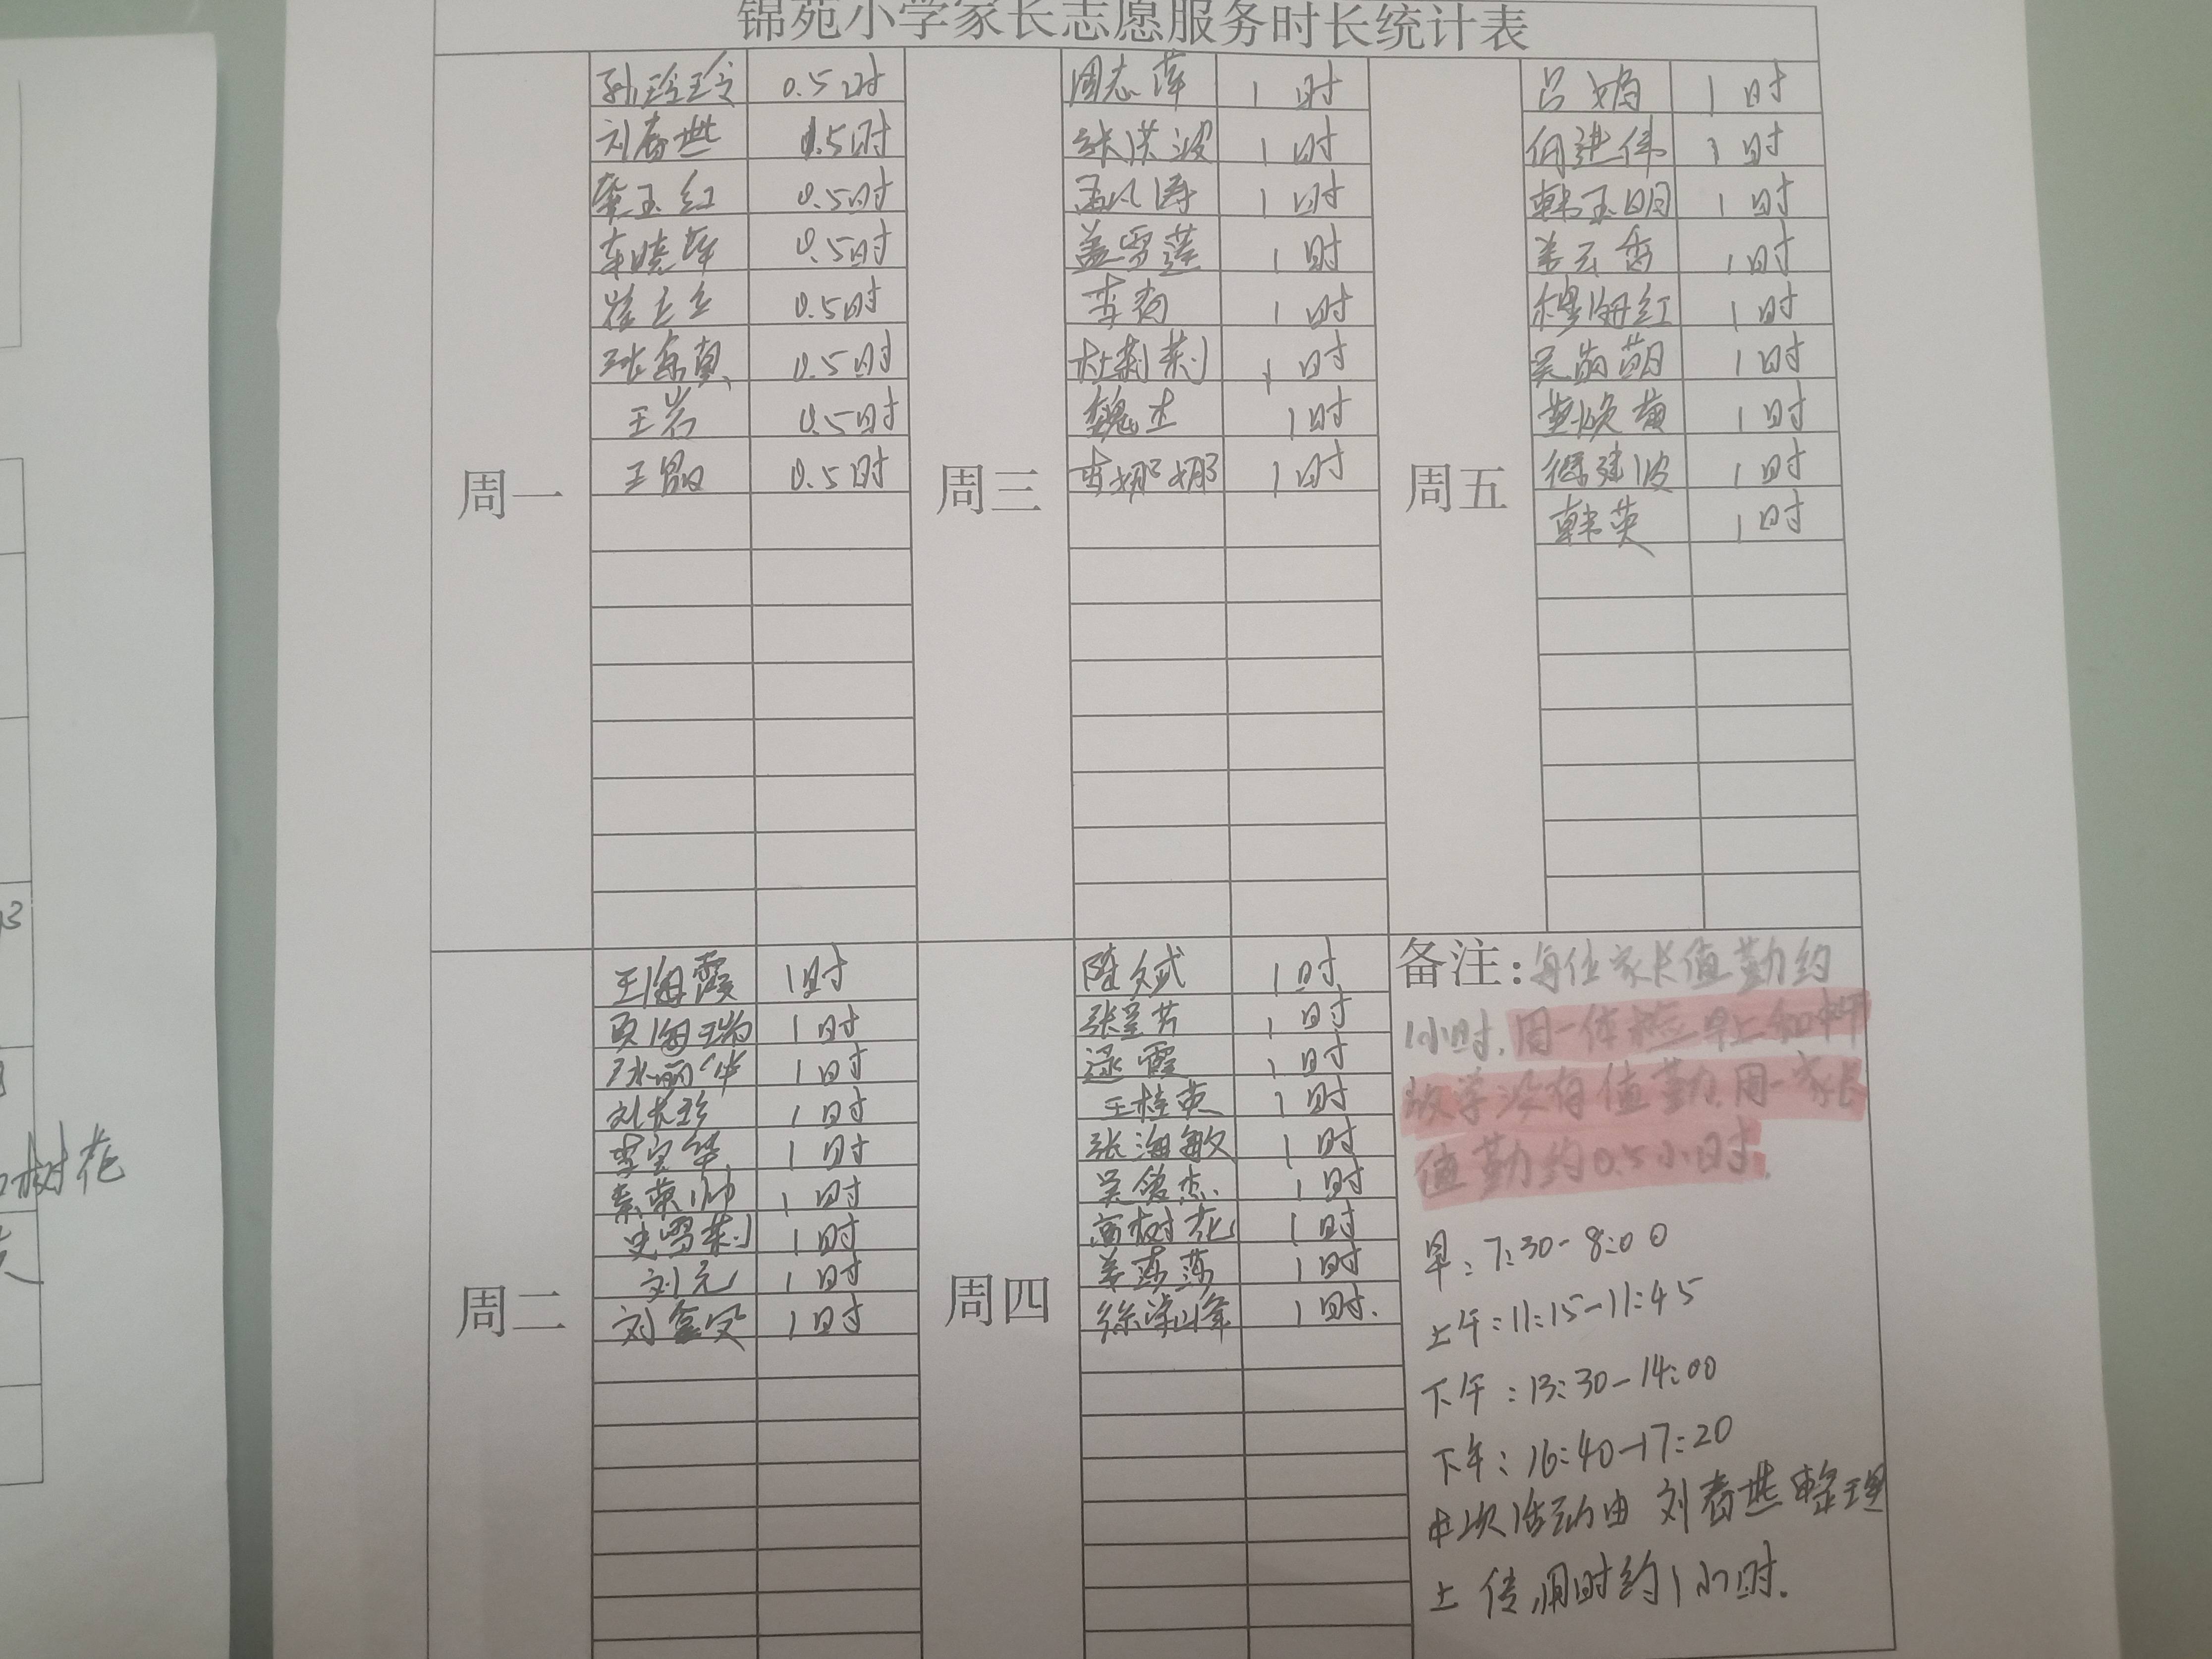 锦苑小学家长志愿服务时长统计表
周一
孙玲玲 0.5时
刘春世 1.5时
栾玉红 0.5时
车晓萍 0.5时
崔立立 0.5时
0.5时
王岩 0.5时
王 0.5时
周三
周志萍 1时
张洪波 1时
孟凡涛 1时
盖雪莲 1时
李 1时
杜莉莉 1时
魏杰 1时
李娜娜 1时
周五
吕娟 1时
何进伟 1时
韩玉明 1时
姜云香 1时
穆海红 1时
吴萌萌 1时
1时
建波 1时
韩英 1时
周二
王海霞 1时
贾海瑞 1时
张丽华 1时
刘长珍 1时
李宝华 1时
秦荣帅 1时
史雪莉 1时
刘元 1时
刘金凤 1时
周四
陈文斌 1时
张 芳 1时
逯霞 1时
王桂英 1时
张海敏 1时
吴俊杰 1时
高树花 1时
姜莎莎 1时
徐洪峰 1时.
备注:每位家长值勤约
1小时.周一体检早上和中午
放学没有值勤.周一家长
值勤约0.5小时.
早:7:30-8:00
上午:11:15-11:45
下午:13:30-14:00
下午:16:40-17:20
本次活动由刘春世整理
上传用时约1小时.
树花